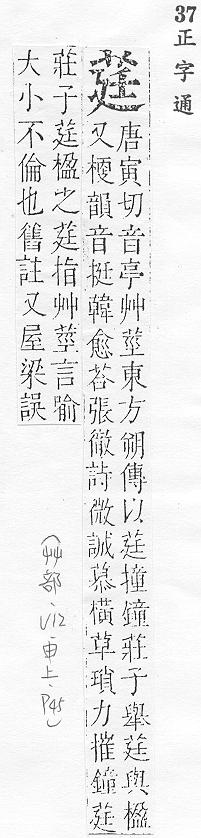 37 正字通
莛 唐寅切音亭艸莖東方朔傳以莛撞鐘莊子舉莛與楹
又梗韻音挺韓愈荅張徹詩微誠慕橫草瑣力摧鐘莛
莊子莛楹之莛指艸莖言喻
大小不倫也舊註又屋梁誤
(艸部、V12申上、P45)